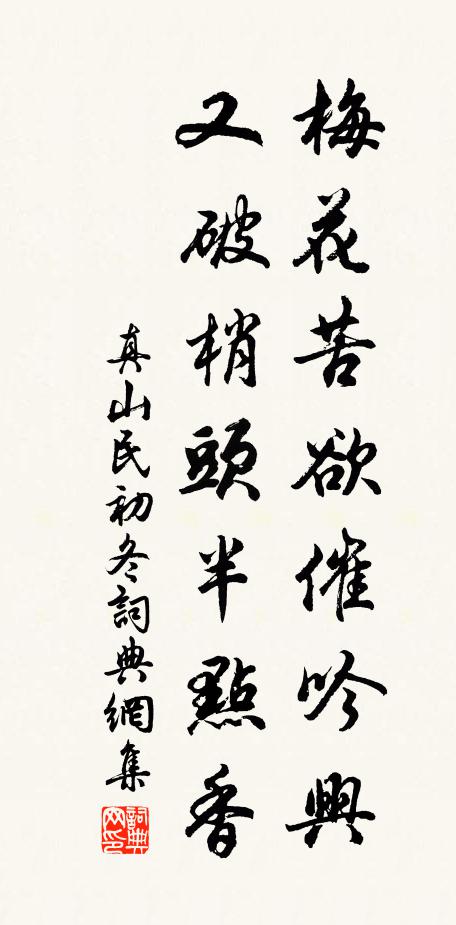 梅花苦欲催吟興
又破梢頭半點香
真山民初冬詞典網集
詞典網印